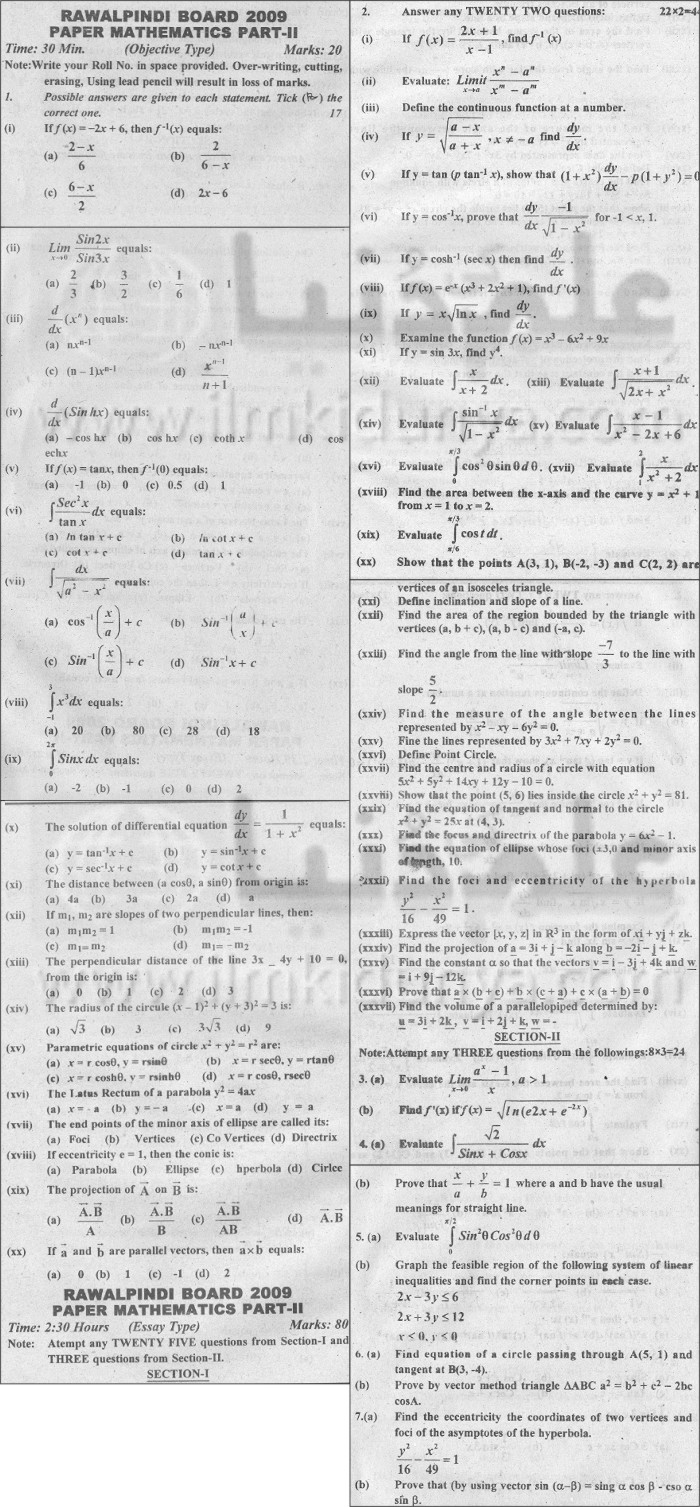 RAWALPINDI BOARD 2009
PAPER MATHEMATICS PART-II
Time: 30 Min. (Objective Type) Marks: 20
Note:Write your Roll No. in space provided. Over-writing, cutting,
erasing, Using lead pencil will result in loss of marks.
1. Possible answers are given to each statement. Tick (✓) the
correct one. 17
(i) If f (x) = –2x + 6, then f⁻¹(x) equals:
(a) (-2 – x)/6 (b) 2/(6 – x)
(c) (6 – x)/2 (d) 2x – 6
(ii) Lim x→0 Sin2x/Sin3x equals:
(a) 2/3 (b) 3/2 (c) 1/6 (d) 1
(iii) d/dx (xⁿ) equals:
(a) nxⁿ⁻¹ (b) – nxⁿ⁻¹
(c) (n – 1)xⁿ⁻¹ (d) xⁿ⁻¹/(n + 1)
(iv) d/dx (Sin hx) equals:
(a) – cos hx (b) cos hx (c) coth x (d) cos
echx
(v) If f(x) = tanx, then f⁻¹(0) equals:
(a) -1 (b) 0 (c) 0.5 (d) 1
(vi) ∫ Sec²x/tan x dx equals:
(a) ln tan x + c (b) ln cot x + c
(c) cot x + c (d) tan x + c
(vii) ∫ dx/√(a² – x²) equals:
(a) cos⁻¹(x/a) + c (b) Sin⁻¹(a/x) + c
(c) Sin⁻¹(x/a) + c (d) Sin⁻¹x + c
(viii) ∫₋₁³ x³dx equals:
(a) 20 (b) 80 (c) 28 (d) 18
(ix) ∫₀^2π Sinx dx equals:
(a) -2 (b) -1 (c) 0 (d) 2
(x) The solution of differential equation dy/dx = 1/(1 + x²) equals:
(a) y = tan⁻¹x + c (b) y = sin⁻¹x + c
(c) y = sec⁻¹x + c (d) y = cot x + c
(xi) The distance between (a cosθ, a sinθ) from origin is:
(a) 4a (b) 3a (c) 2a (d) a
(xii) If m₁, m₂ are slopes of two perpendicular lines, then:
(a) m₁m₂ = 1 (b) m₁m₂ = -1
(c) m₁= m₂ (d) m₁= – m₂
(xiii) The perpendicular distance of the line 3x _ 4y + 10 = 0,
from the origin is:
(a) 0 (b) 1 (c) 2 (d) 3
(xiv) The radius of the circule (x – 1)² + (y + 3)² = 3 is:
(a) √3 (b) 3 (c) 3√3 (d) 9
(xv) Parametric equations of circle x² + y² = r² are:
(a) x = r cosθ, y = rsinθ (b) x = r secθ, y = rtanθ
(c) x = r coshθ, y = rsinhθ (d) x = r cosθ, rsecθ
(xvi) The Latus Rectum of a parabola y² = 4ax
(a) x = - a (b) y = – a (c) x = a (d) y = a
(xvii) The end points of the minor axis of ellipse are called its:
(a) Foci (b) Vertices (c) Co Vertices (d) Directrix
(xviii) If eccentricity e = 1, then the conic is:
(a) Parabola (b) Ellipse (c) hperbola (d) Cirlce
(xix) The projection of A⃗ on B⃗ is:
(a) A⃗.B⃗/A (b) A⃗.B⃗/B (c) A⃗.B⃗/AB (d) A⃗.B⃗
(xx) If a⃗ and b⃗ are parallel vectors, then a⃗×b⃗ equals:
(a) 0 (b) 1 (c) -1 (d) 2
RAWALPINDI BOARD 2009
PAPER MATHEMATICS PART-II
Time: 2:30 Hours (Essay Type) Marks: 80
Note: Atempt any TWENTY FIVE questions from Section-I and
THREE questions from Section-II.
SECTION-I
2. Answer any TWENTY TWO questions: 22×2=4
(i) If f(x) = (2x + 1)/(x – 1), find f⁻¹ (x)
(ii) Evaluate: Limit x→a (xⁿ – aⁿ)/(xᵐ – aᵐ)
(iii) Define the continuous function at a number.
(iv) If y = √((a – x)/(a + x)), x ≠ –a find dy/dx.
(v) If y = tan (p tan⁻¹ x), show that (1 + x²) dy/dx – p(1 + y²) = 0
(vi) If y = cos⁻¹x, prove that dy/dx -1/√(1 – x²) for -1 < x, 1.
(vii) If y = cosh⁻¹ (sec x) then find dy/dx.
(viii) If f(x) = e⁻ˣ (x³ + 2x² + 1), find f '(x)
(ix) If y = x√(ln x), find dy/dx.
(x) Examine the function f(x) = x³ – 6x² + 9x
(xi) If y = sin 3x, find y⁴.
(xii) Evaluate ∫ x/(x + 2) dx. (xiii) Evaluate ∫ (x + 1)/√(2x + x²) dx.
(xiv) Evaluate ∫ sin⁻¹ x/√(1 – x²) dx (xv) Evaluate ∫ (x – 1)/(x² – 2x + 6) dx
(xvi) Evaluate ∫₀^π/3 cos² θ sin θ d θ. (xvii) Evaluate ∫₁² x/(x² + 2) dx
(xviii) Find the area between the x-axis and the curve y = x² + 1
from x = 1 to x = 2.
(xix) Evaluate ∫π/6^π/3 cos t dt.
(xx) Show that the points A(3, 1), B(-2, -3) and C(2, 2) are
vertices of an isosceles triangle.
(xxi) Define inclination and slope of a line.
(xxii) Find the area of the region bounded by the triangle with
vertices (a, b + c), (a, b - c) and (-a, c).
(xxiii) Find the angle from the line with slope -7/3 to the line with
slope 5/2.
(xxiv) Find the measure of the angle between the lines
represented by x² – xy – 6y² = 0.
(xxv) Fine the lines represented by 3x² + 7xy + 2y² = 0.
(xxvi) Define Point Circle.
(xxvii) Find the centre and radius of a circle with equation
5x² + 5y² + 14xy + 12y – 10 = 0.
(xxviii) Show that the point (5, 6) lies inside the circle x² + y² = 81.
(xxix) Find the equation of tangent and normal to the circle
x² + y² = 25x at (4, 3).
(xxx) Find the focus and directrix of the parabola y = 6x² – 1.
(xxxi) Find the equation of ellipse whose foci (±3,0 and minor axis
of length, 10.
(xxxii) Find the foci and eccentricity of the hyperbola
y²/16 – x²/49 = 1.
(xxxiii) Express the vector [x, y, z] in R³ in the form of xi + yj + zk.
(xxxiv) Find the projection of a = 3i + j – k along b = –2i – j + k.
(xxxv) Find the constant α so that the vectors v = i – 3j + 4k and w
= i + 9j – 12k.
(xxxvi) Prove that a × (b + c) + b × (c + a) + c × (a + b) = 0
(xxxvii) Find the volume of a parallelopiped determined by:
u = 3i + 2k, v = i + 2j + k, w = -
SECTION-II
Note:Attempt any THREE questions from the followings:8×3=24
3. (a) Evaluate Lim x→0 (aˣ – 1)/x, a > 1
(b) Find f'(x) if f(x) = √(ln(e2x + e⁻²ˣ))
4. (a) Evaluate ∫ √2/(Sinx + Cosx) dx
(b) Prove that x/a + y/b = 1 where a and b have the usual
meanings for straight line.
5. (a) Evaluate ∫₀^π/2 Sin²θ Cos²θ d θ
(b) Graph the feasible region of the following system of linear
inequalities and find the corner points in each case.
2x – 3y ≤ 6
2x + 3y ≤ 12
x < 0, y < 0
6. (a) Find equation of a circle passing through A(5, 1) and
tangent at B(3, -4).
(b) Prove by vector method triangle ΔABC a² = b² + c² – 2bc
cosA.
7.(a) Find the eccentricity the coordinates of two vertices and
foci of the asymptotes of the hyperbola.
y²/16 – x²/49 = 1
(b) Prove that (by using vector sin (α–β) = sing α cos β - cso α
sin β.